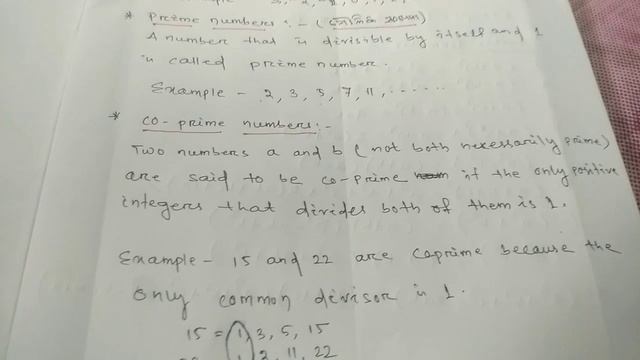 * Prime numbers :- (
A number that is divisible by itself and 1
is called prime number.
Example - 2, 3, 5, 7, 11, ......
* CO-prime numbers:-
Two numbers a and b (not both necessarily prime)
are said to be co-prime if the only positive
integers that divides both of them is 1.
Example - 15 and 22 are coprime because the
only common divisor is 1.
15 = 1, 3, 5, 15
1, 2, 11, 22